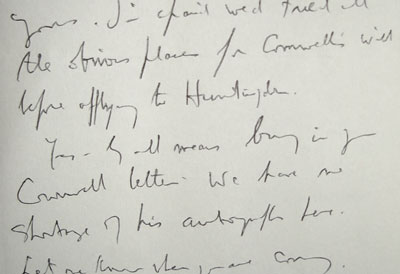 yours. I'm afraid we'd tried all
the obvious places for Cromwell's will
before applying to Huntingdon.
Yes - by all means bring in your
Cromwell letter. We have no
shortage of his autographs here.
Let me know when you are coming.